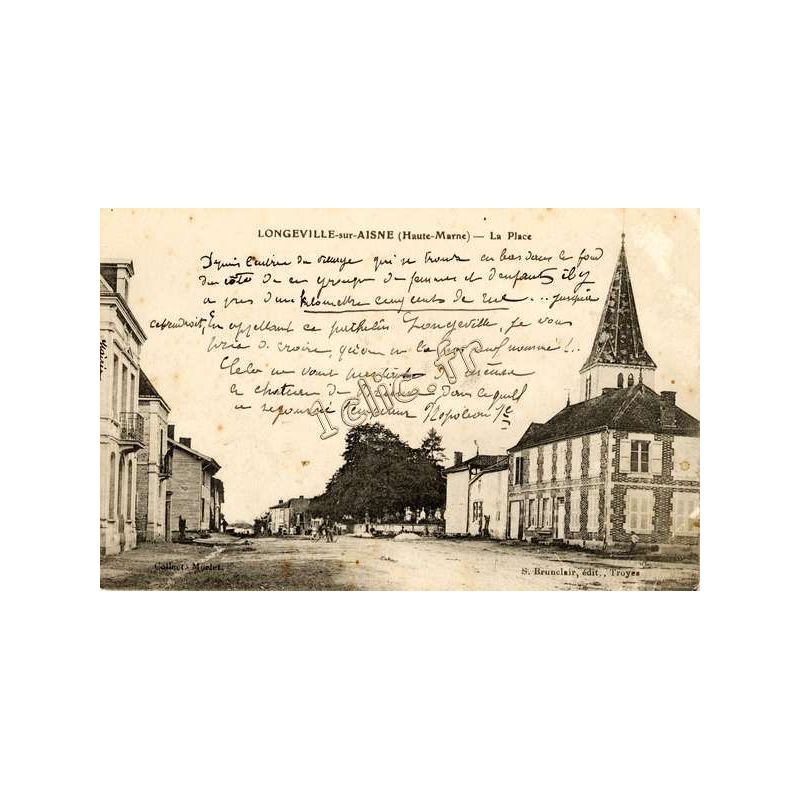 LONGEVILLE-sur-AISNE (Haute-Marne) — La Place
Depuis l'entrée du village qui se trouve en bas dans le fond
du côté de ce groupe de femmes et d'enfants il y
a près d'un kilomètre cinq cents de rue ... jusqu'à
cet endroit, En appellant ce Longeville, je vous
prie de croire, qu'on ne l'a pas mal nommé !..
Cela ne vaut pas même
le château de dans lequel
a séjourné Napoléon 1e
1clic.fr
Collect. Morlet.
S. Brunclair, édit., Troyes